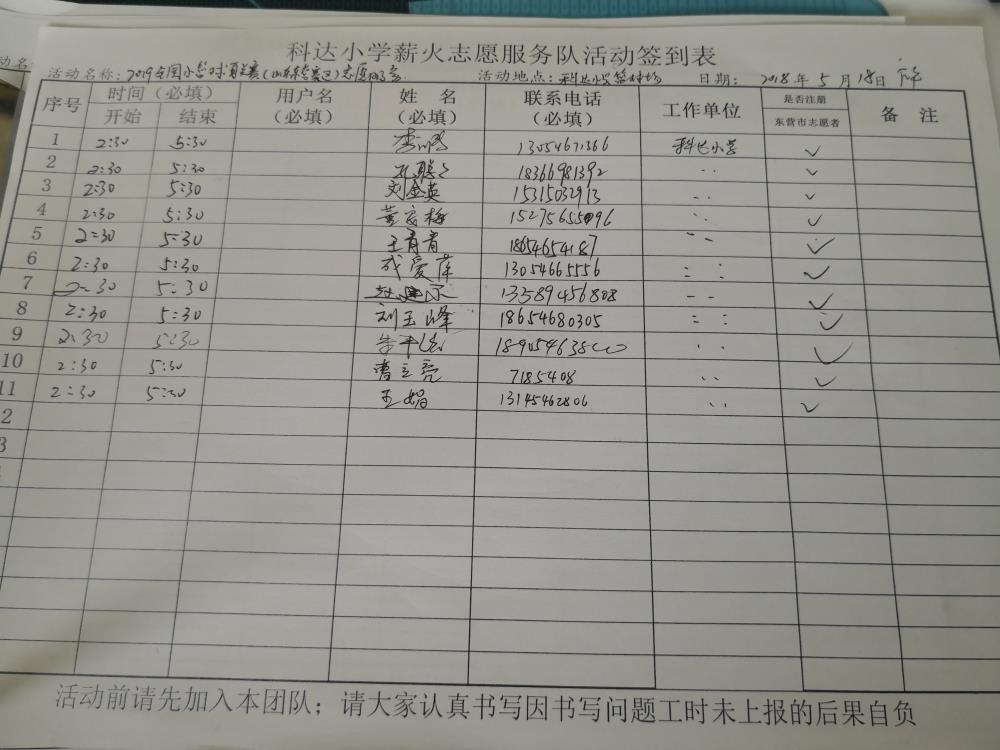 科达小学薪火志愿服务队活动签到表
活动名称：2019全国小 活动地点：科达小学篮球场 日期： 2018年5月18日
序号 时间（必填） 用户名（必填） 姓名（必填） 联系电话（必填） 工作单位 是否注册东营市志愿者 备注
开始 结束
1 2:30 5:30 李 13054671366 科达小学 ✓
2 2:30 5:30 18366981392 ✓
3 2:30 5:30 刘金英 15315032913 ✓
4 2:30 5:30 梅 ✓
5 2:30 5:30 王青青 18654654187 ✓
6 2:30 5:30 成爱萍 13054665556 ✓
7 2:30 5:30 赵 13589456808 ✓
8 2:30 5:30 刘玉峰 18654680305 ✓
9 2:30 5:30 ✓
10 2:30 5:30 曹立亮 7185408 ✓
11 2:30 5:30 王娟 13145462806 ✓
2
3
活动前请先加入本团队；请大家认真书写因书写问题工时未上报的后果自负